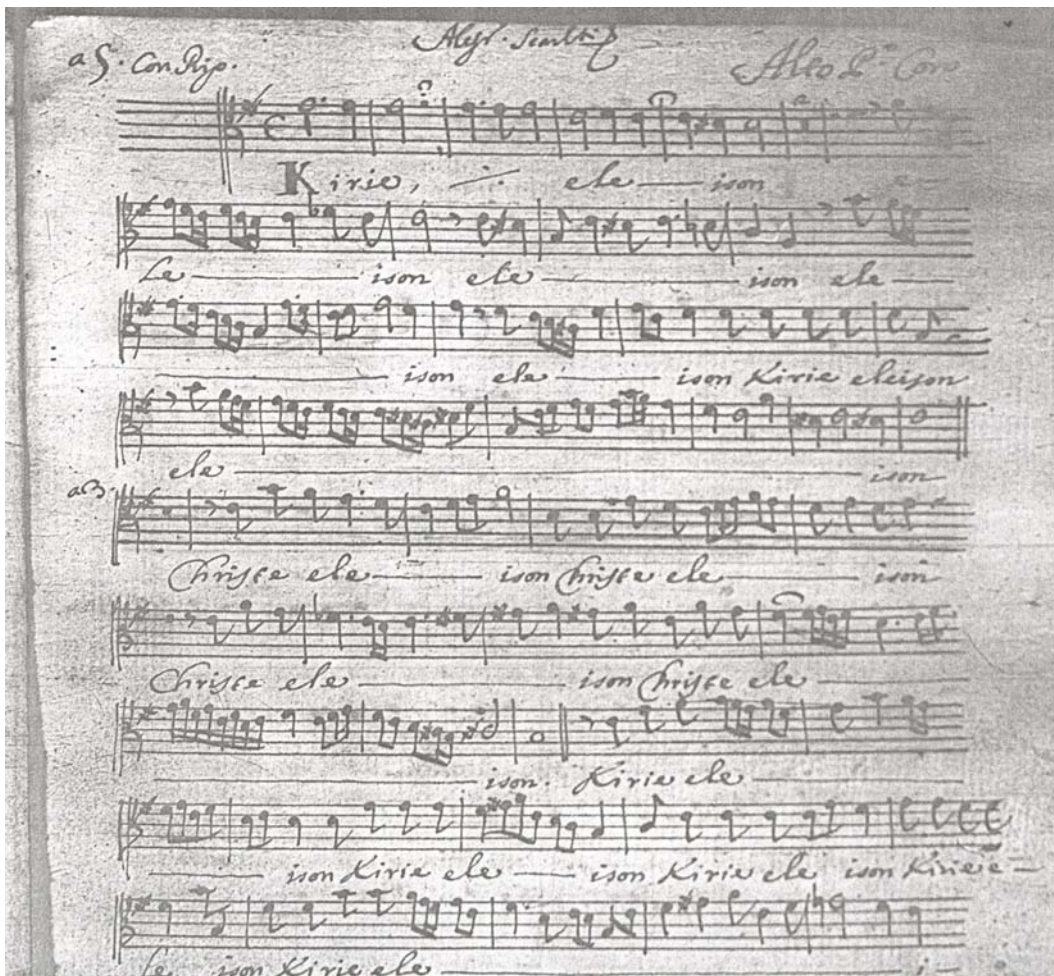 a 5. Con Rip. Aless. Scarlti Alto P.º Coro
Kirie, ele ison
Le ison ele ison ele
ison ele ison Kirie eleison
ele ison
a 3.
Christe ele ison Christe ele ison
Christe ele ison Christe ele
ison. Kirie ele
ison Kirie ele ison Kirie ele ison Kirie e
le ison Kirie ele i